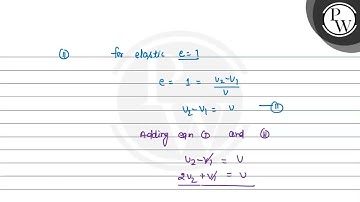 PW
(ii) for elastic e = 1
e = 1 = v₂-v₁/v
v₂-v₁ = v —(ii)
Adding eqn (i) and (ii)
v₂-v₁ = v
2v₂+v₁ = v